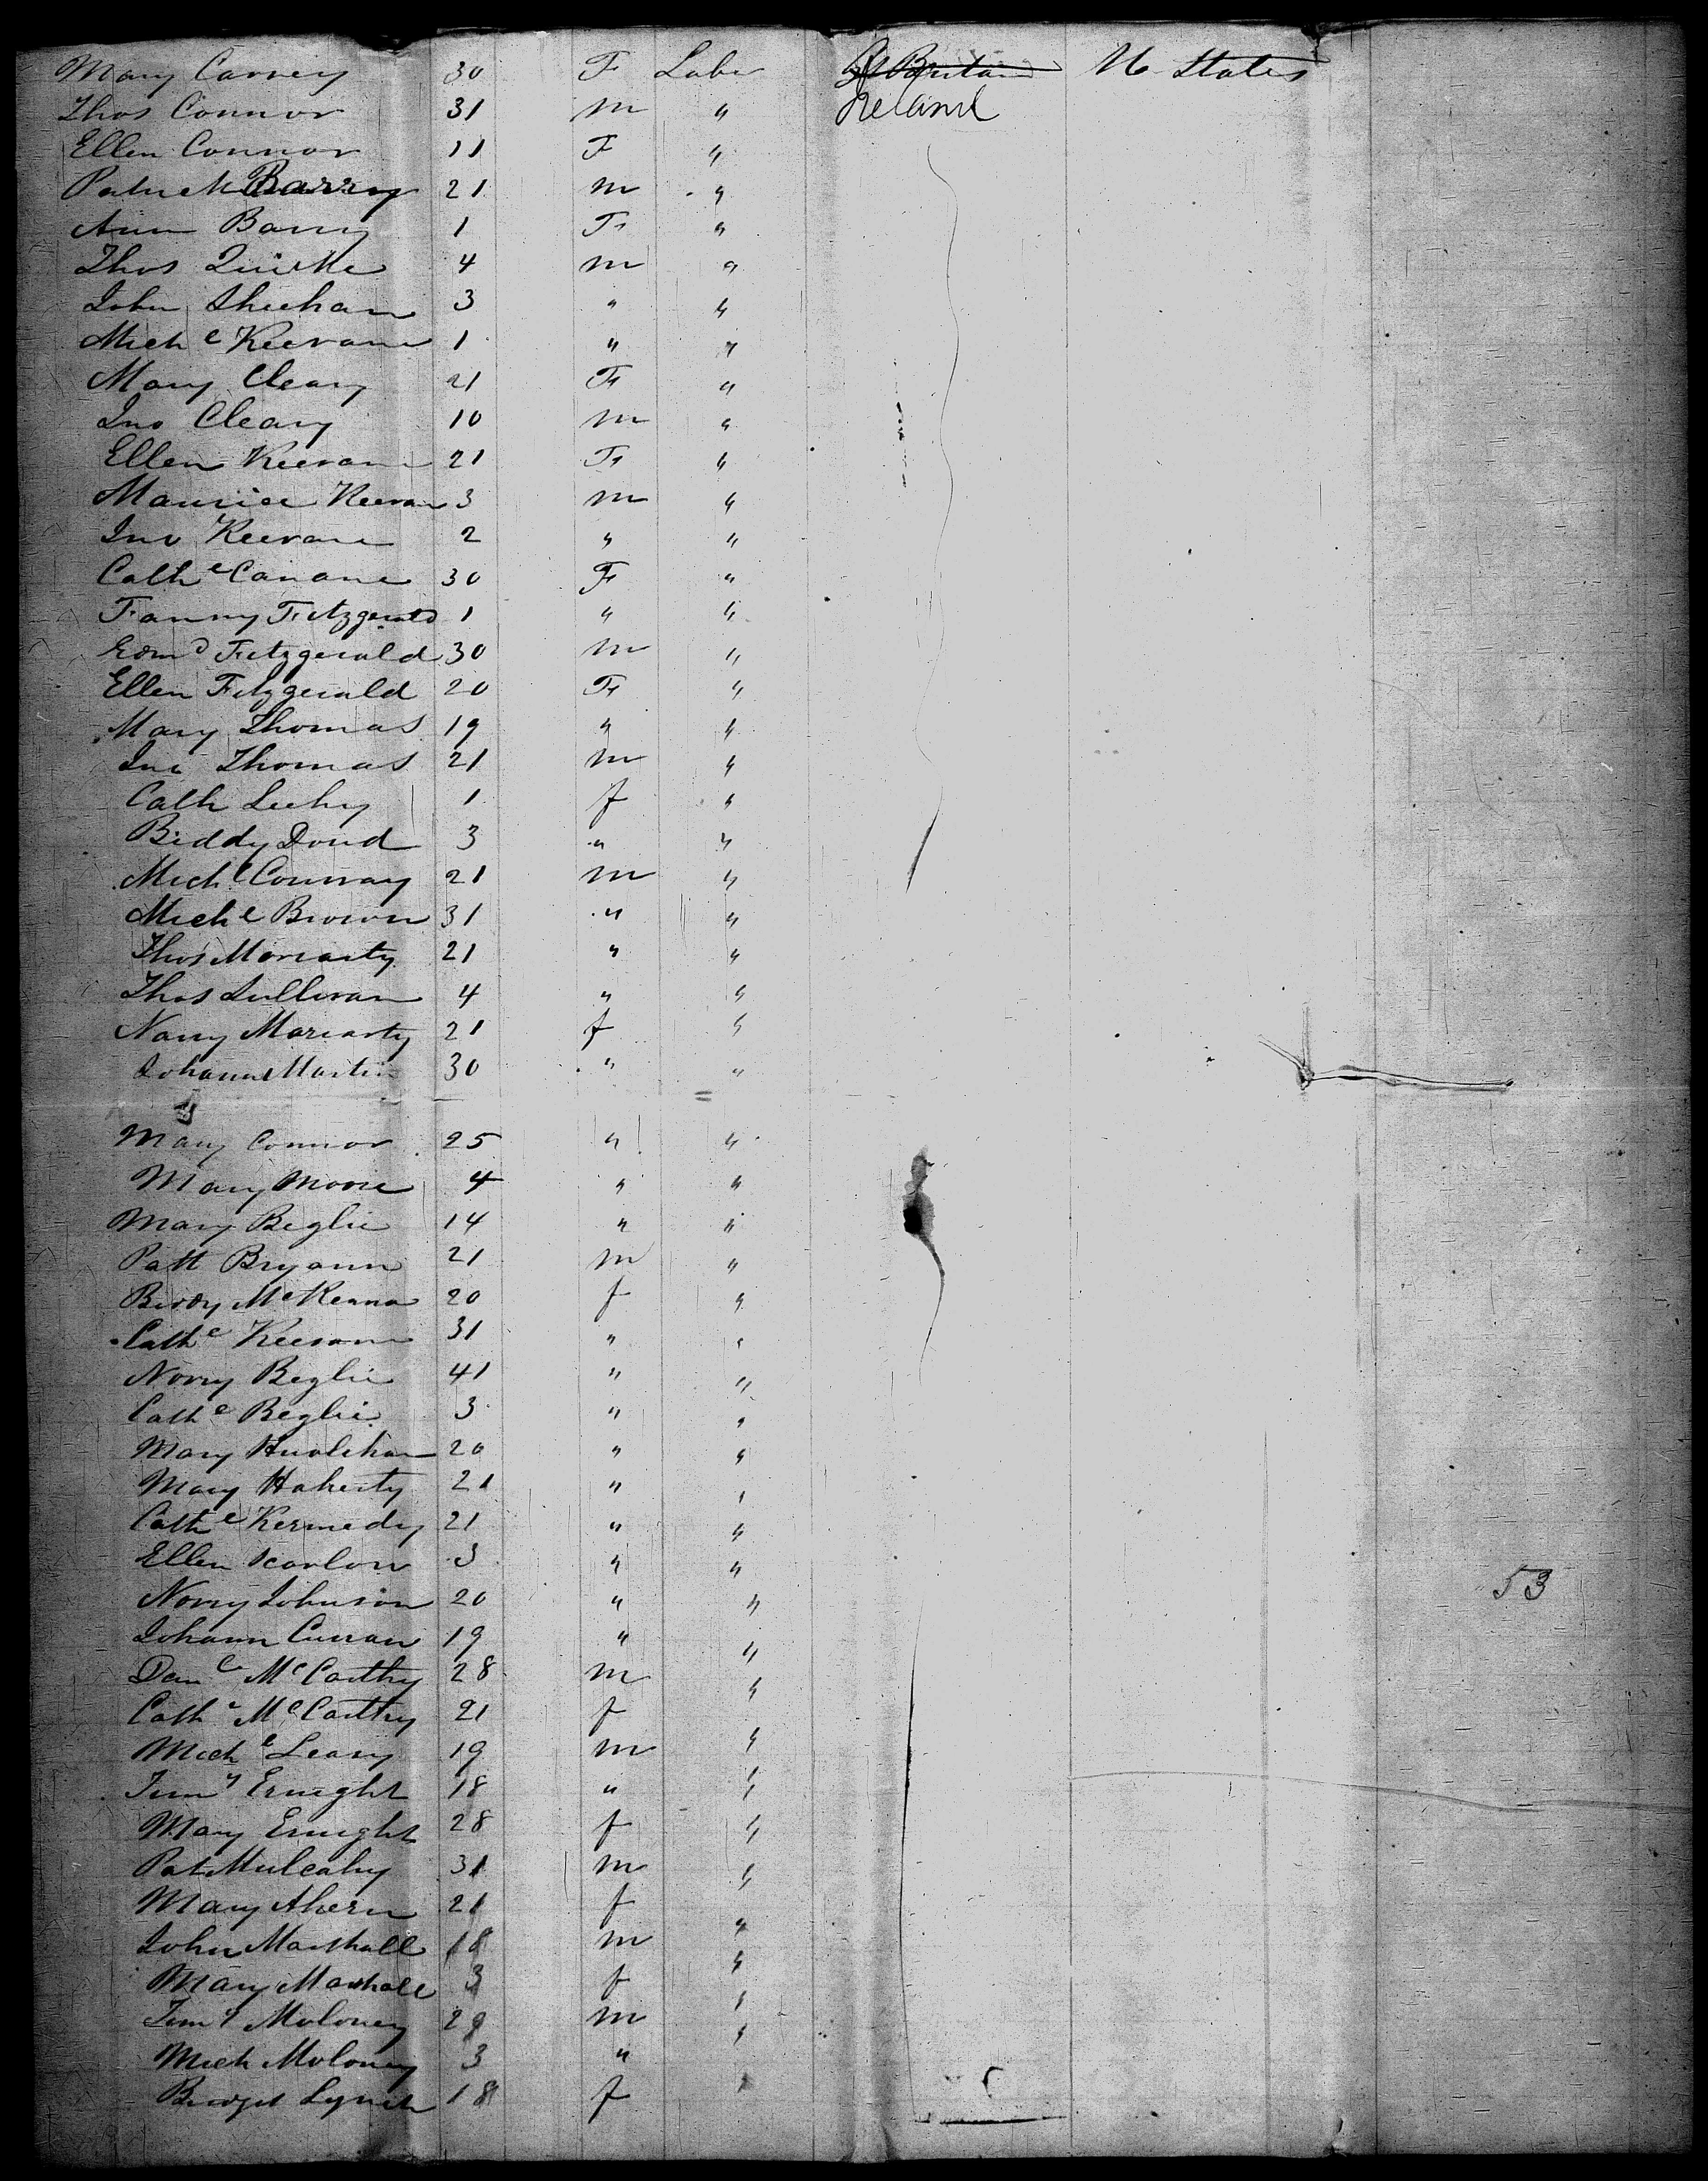 Mary Carney 30 F Labr Gt Britain U States
Thos Connor 31 m " Ireland
Ellen Connor 11 F "
Patrick Barry 21 m "
Ann Barry 1 F "
Thos Quirke 4 m "
John Sheehan 3 " "
Mich l Keevane 1 " "
Mary Cleary 21 F "
Jno Cleary 10 m "
Ellen Keevane 21 F "
Maurice Keevan 3 m "
Jno Keevane 2 " "
Cath e Canane 30 F "
Fanny Fitzgerald 1 " "
Edmd Fitzgerald 30 m "
Ellen Fitzgerald 20 F "
Mary Thomas 19 " "
Jno Thomas 21 m "
Cath Leehy 1 f "
Biddy Doud 3 " "
Mich l Conway 21 m "
Mich l Brown 31 " "
Thos Moriarty 21 " "
Thos Sullivan 4 " "
Nany Moriarty 21 f "
Johanna Martin 30 " "
Mary Connor 25 " "
Mary Moore 4 " "
Mary Beglie 14 " "
Patt Bryann 21 m "
Biddy McKenna 20 f "
Cath e Keevane 31 " "
Norry Beglie 41 " "
Cath e Beglie 3 " "
Mary 20 " "
Mary Haherty 21 " "
Cath e Kennedy 21 " "
Ellen Scanlon 3 " "
Norry Johnson 20 " " 53
Johann Curran 19 " "
Dan l McCarthy 28 m "
Cath e McCarthy 21 f
Mich l Leary 19 m "
Tim y Enright 18 " "
Mary Enright 28 f "
Pat Mulcahy 31 m "
Mary Ahern 21 f
John Marshall 18 m "
Mary Marshall 3 f "
Tim y Moloney 29 m "
Mich Moloney 3 " "
Bridget Lynch 18 f "